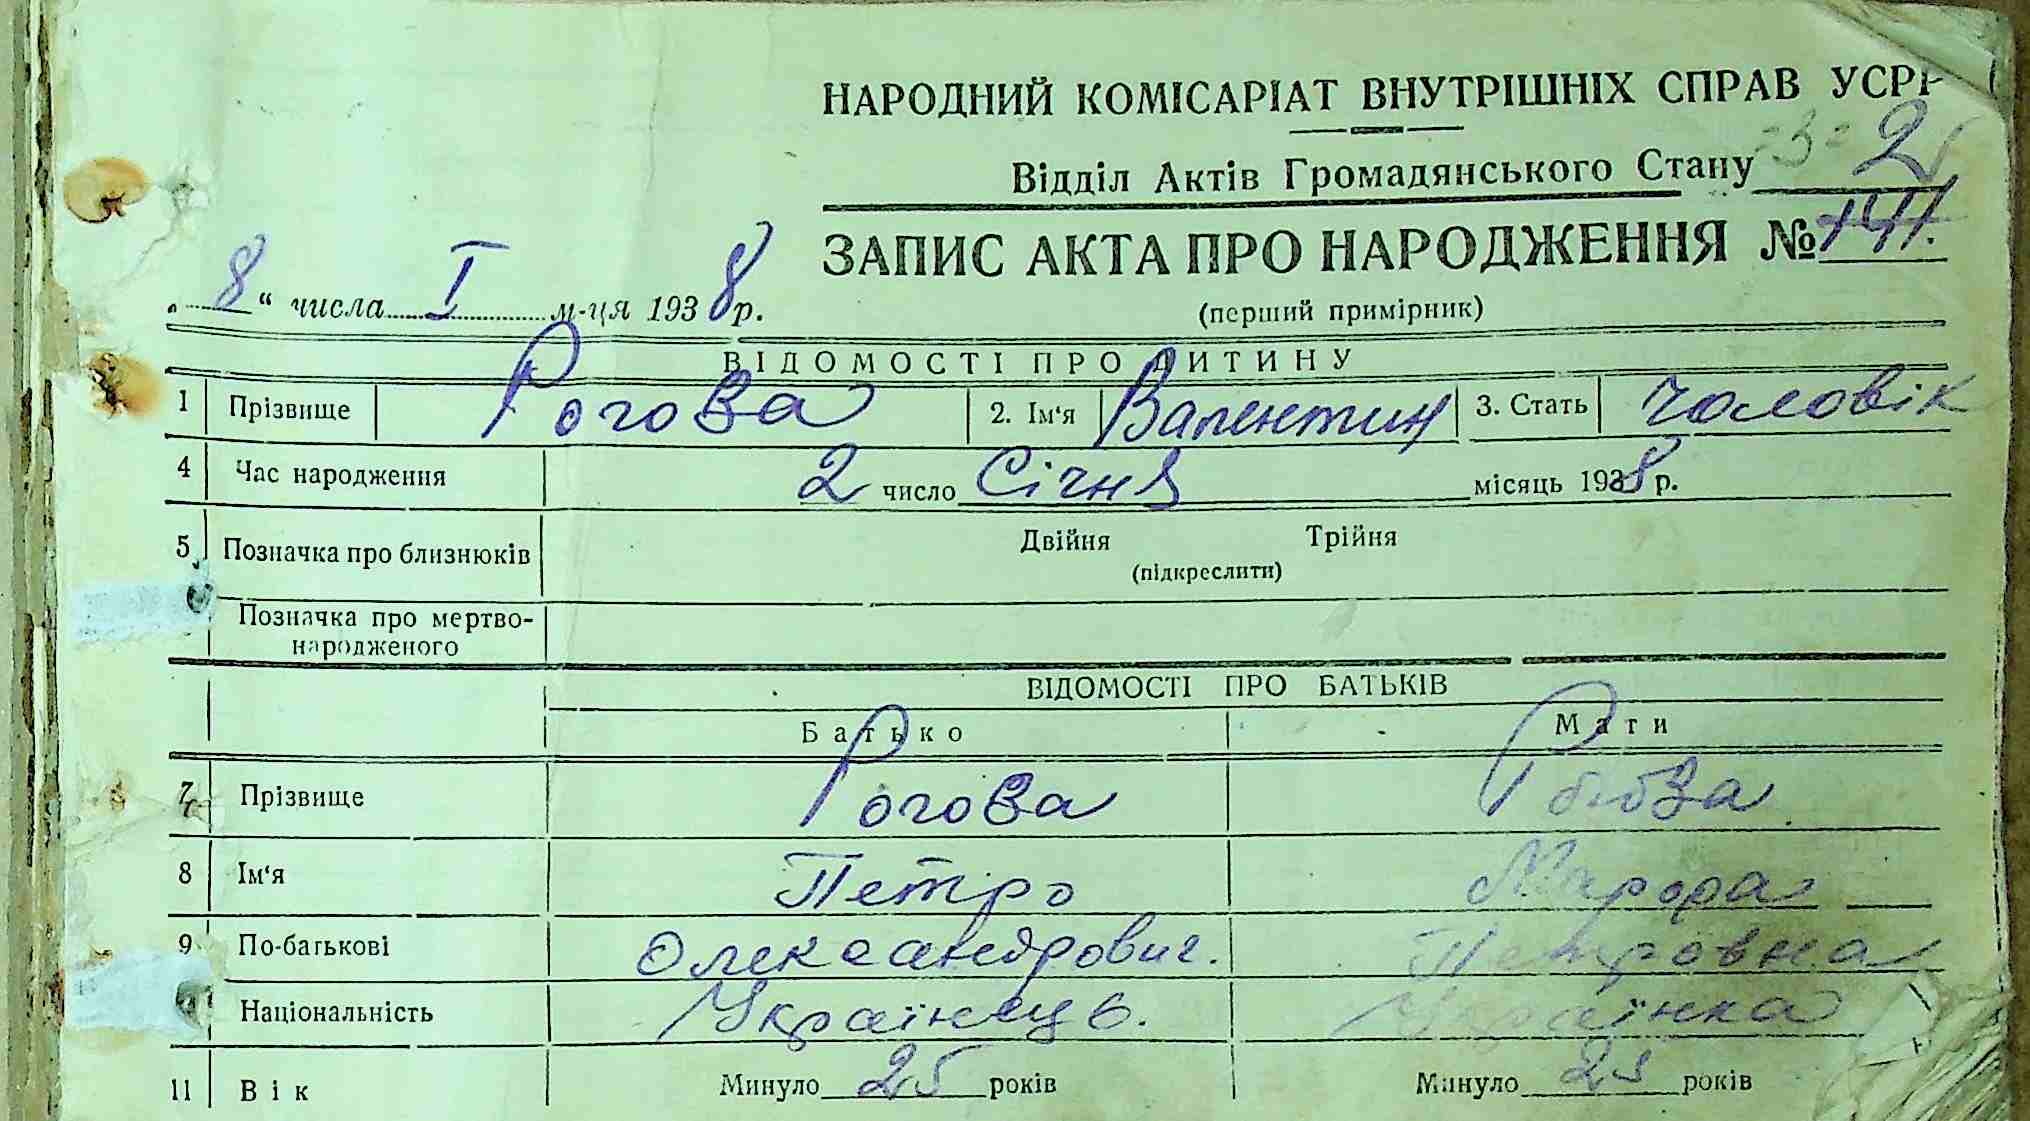 НАРОДНИЙ КОМІСАРІАТ ВНУТРІШНІХ СПРАВ УСРР
-3- 2
Відділ Актів Громадянського Стану
ЗАПИС АКТА ПРО НАРОДЖЕННЯ №
„8“ числа I м-ця 1938р.
(перший примірник)
ВІДОМОСТІ ПРО ДИТИНУ
1 Прізвище Рогова 2. Ім‘я Валентин 3. Стать чоловік
4 Час народження 2 число Січня місяць 1938 р.
5 Позначка про близнюків Двійня Трійня
(підкреслити)
Позначка про мертво-
народженого
ВІДОМОСТІ ПРО БАТЬКІВ
Батько Мати
7 Прізвище Рогова
8 Ім‘я Петро
9 По-батькові Олександрович. Петровна
Національність Українець. Українка
11 Вік Минуло 25 років Минуло 23 років